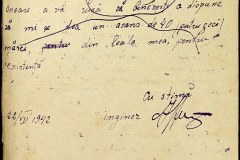 onoare a vă ruga să binevoiți a dispune
să mi se dea un avans de 40 patruzeci
marci, pentru din leafa mea, pentru
existență
Cu stimă
22/VII 1942 inginer